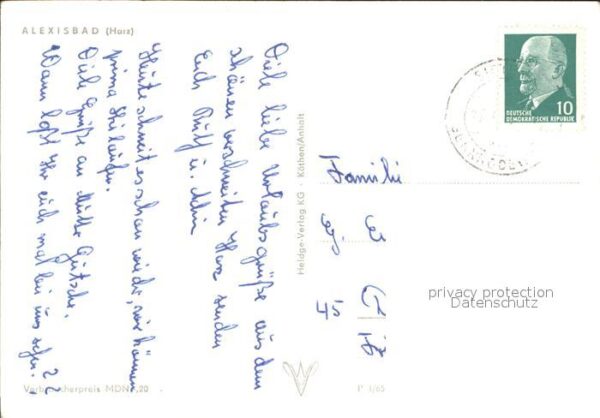 ALEXISBAD (Harz)
Viele liebe Urlaubsgrüße aus dem
schönen verschneiten Harz senden
Euch Ruth u.
Heute schneit es schon wieder, wir können
prima Ski laufen.
Viele Grüße an Mutter
Wann laßt Ihr euch mal bei uns sehen??
Verbraucherpreis MDN 0,20
Heldge-Verlag KG · Köthen/Anhalt
P 1/65
DEUTSCHE
DEMOKRATISCHE REPUBLIK
10
Familie
privacy protection
Datenschutz